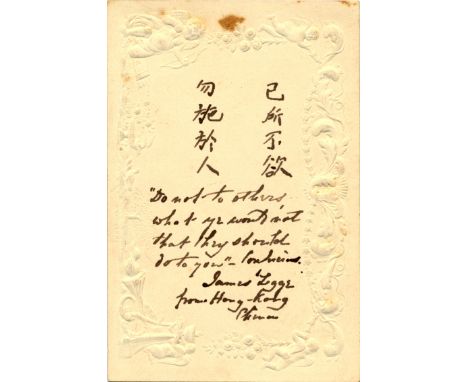 己所不欲
勿施於人
"Do not to others,
what ye would not
that they should
do to you" - Confucius.
James Legge
from Hong-Kong
China